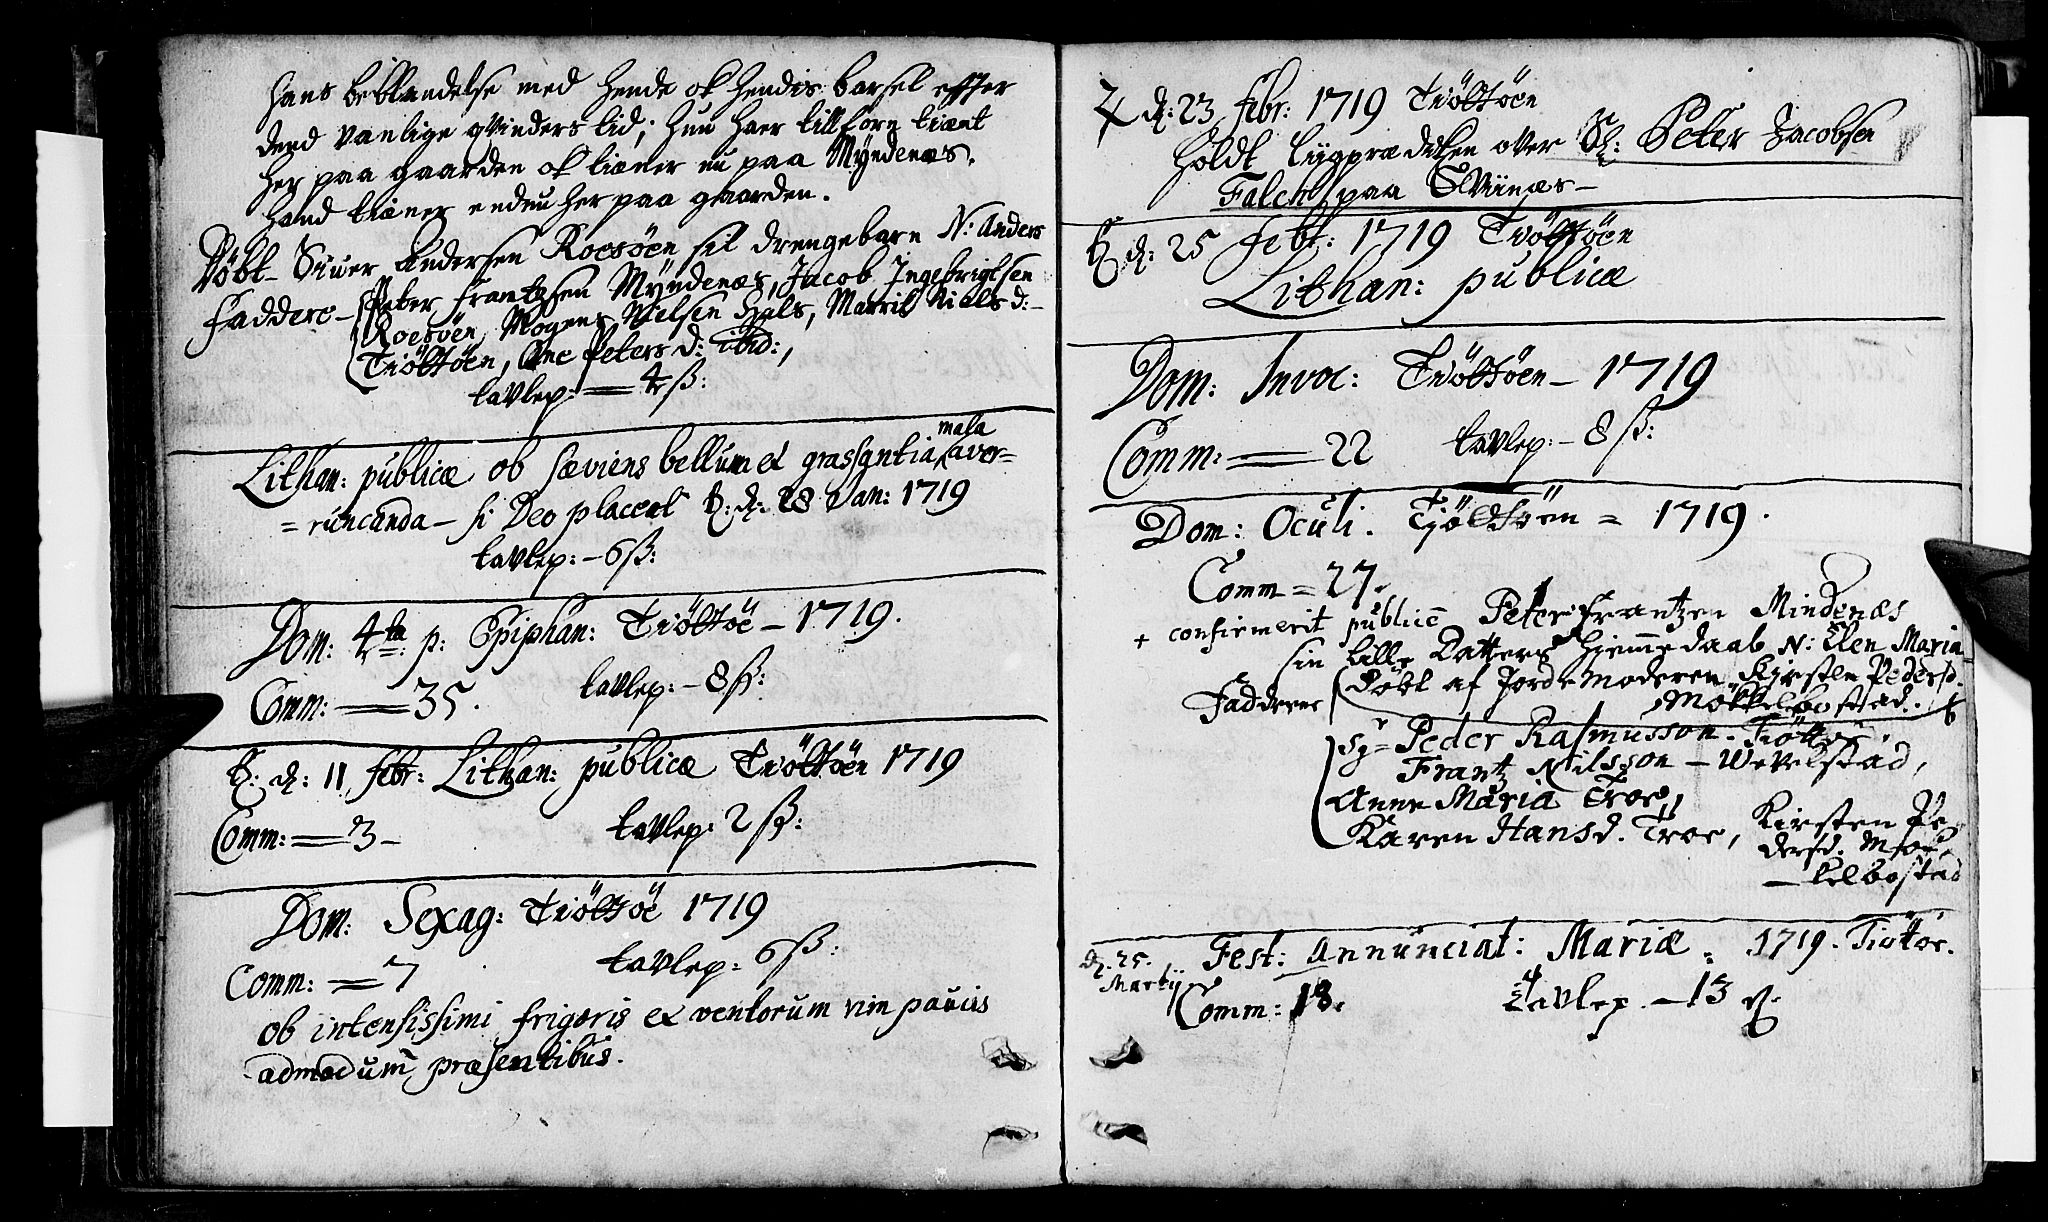 hans beblandelse med hende ok hendis barsel effter
dend vanlige qvinders tid; hun haer tillforn tiænt
her paa gaarden ok tiæner nu paa Myndenæs.
hand tiæner endnu her paa gaarden.
Döbt Siuer Andersen Roesöen sit drengebarn N: Anders
Faddere Peter Frantzsen Myndenæs, Jacob Ingebrigtsen
Roesöen, Mogens Nielsen Hals, Marrit Niels d:
Tiöttöen, Ane Peters d: ibid:,
tavlep: = 4 ß:
Lithan: publicæ ob sæviens bellum et grassantia mala avor=
= runcanda – si Deo placeat ♄: d: 28 Jan: 1719
tavlep: – 6 ß:
Dom: 4ta p: Epiphan: Tiöttöe – 1719.
Comm: = 35. tavlep: – 8 ß:
♄: d: 11 febr: Lithan: publicæ Tiöttöen 1719
Comm: = 3 – tavlep: 2 ß:
Dom: Sexag: Tiöttöe 1719
Comm: = 7 tavlep: 6 ß:
ob intensissimi frigoris et ventorum vim paucis
admodum præsentibus.
♃ d: 23 febr: 1719 Tiöttöen
holdt liigprædiken over Sl: Peter Jacobsen
Falch paa
♄ d: 25 febr: 1719 Tiöttöen
Lithan: publicæ
Dom: Invoc: Tiöttöen – 1719
Comm: = 22 tavlep: – 8 ß:
Dom: Oculi. Tjöttöen = 1719.
Comm = 27.
+ confirmerit publicè Peter Frantzen Mindenæs
sin lille Datters hiemmedaab N: Elen Maria
döbt af Jordemoderen Kirsten Peders d.
Mökkelbostad.
Fadderne
Sr = Peder Rasmusson. Tiöttöe
Frantz Nilsson – Wevelstad,
Anne Maria Troe,
Karen Hansd. Troe, Kirsten Pe
dersd. Miöc
– kelbostad
d. 25. Fest: Annunciat: Mariæ 1719. Tiöttöe.
Martij
Comm: 18. Tavlep. – 13 ß.